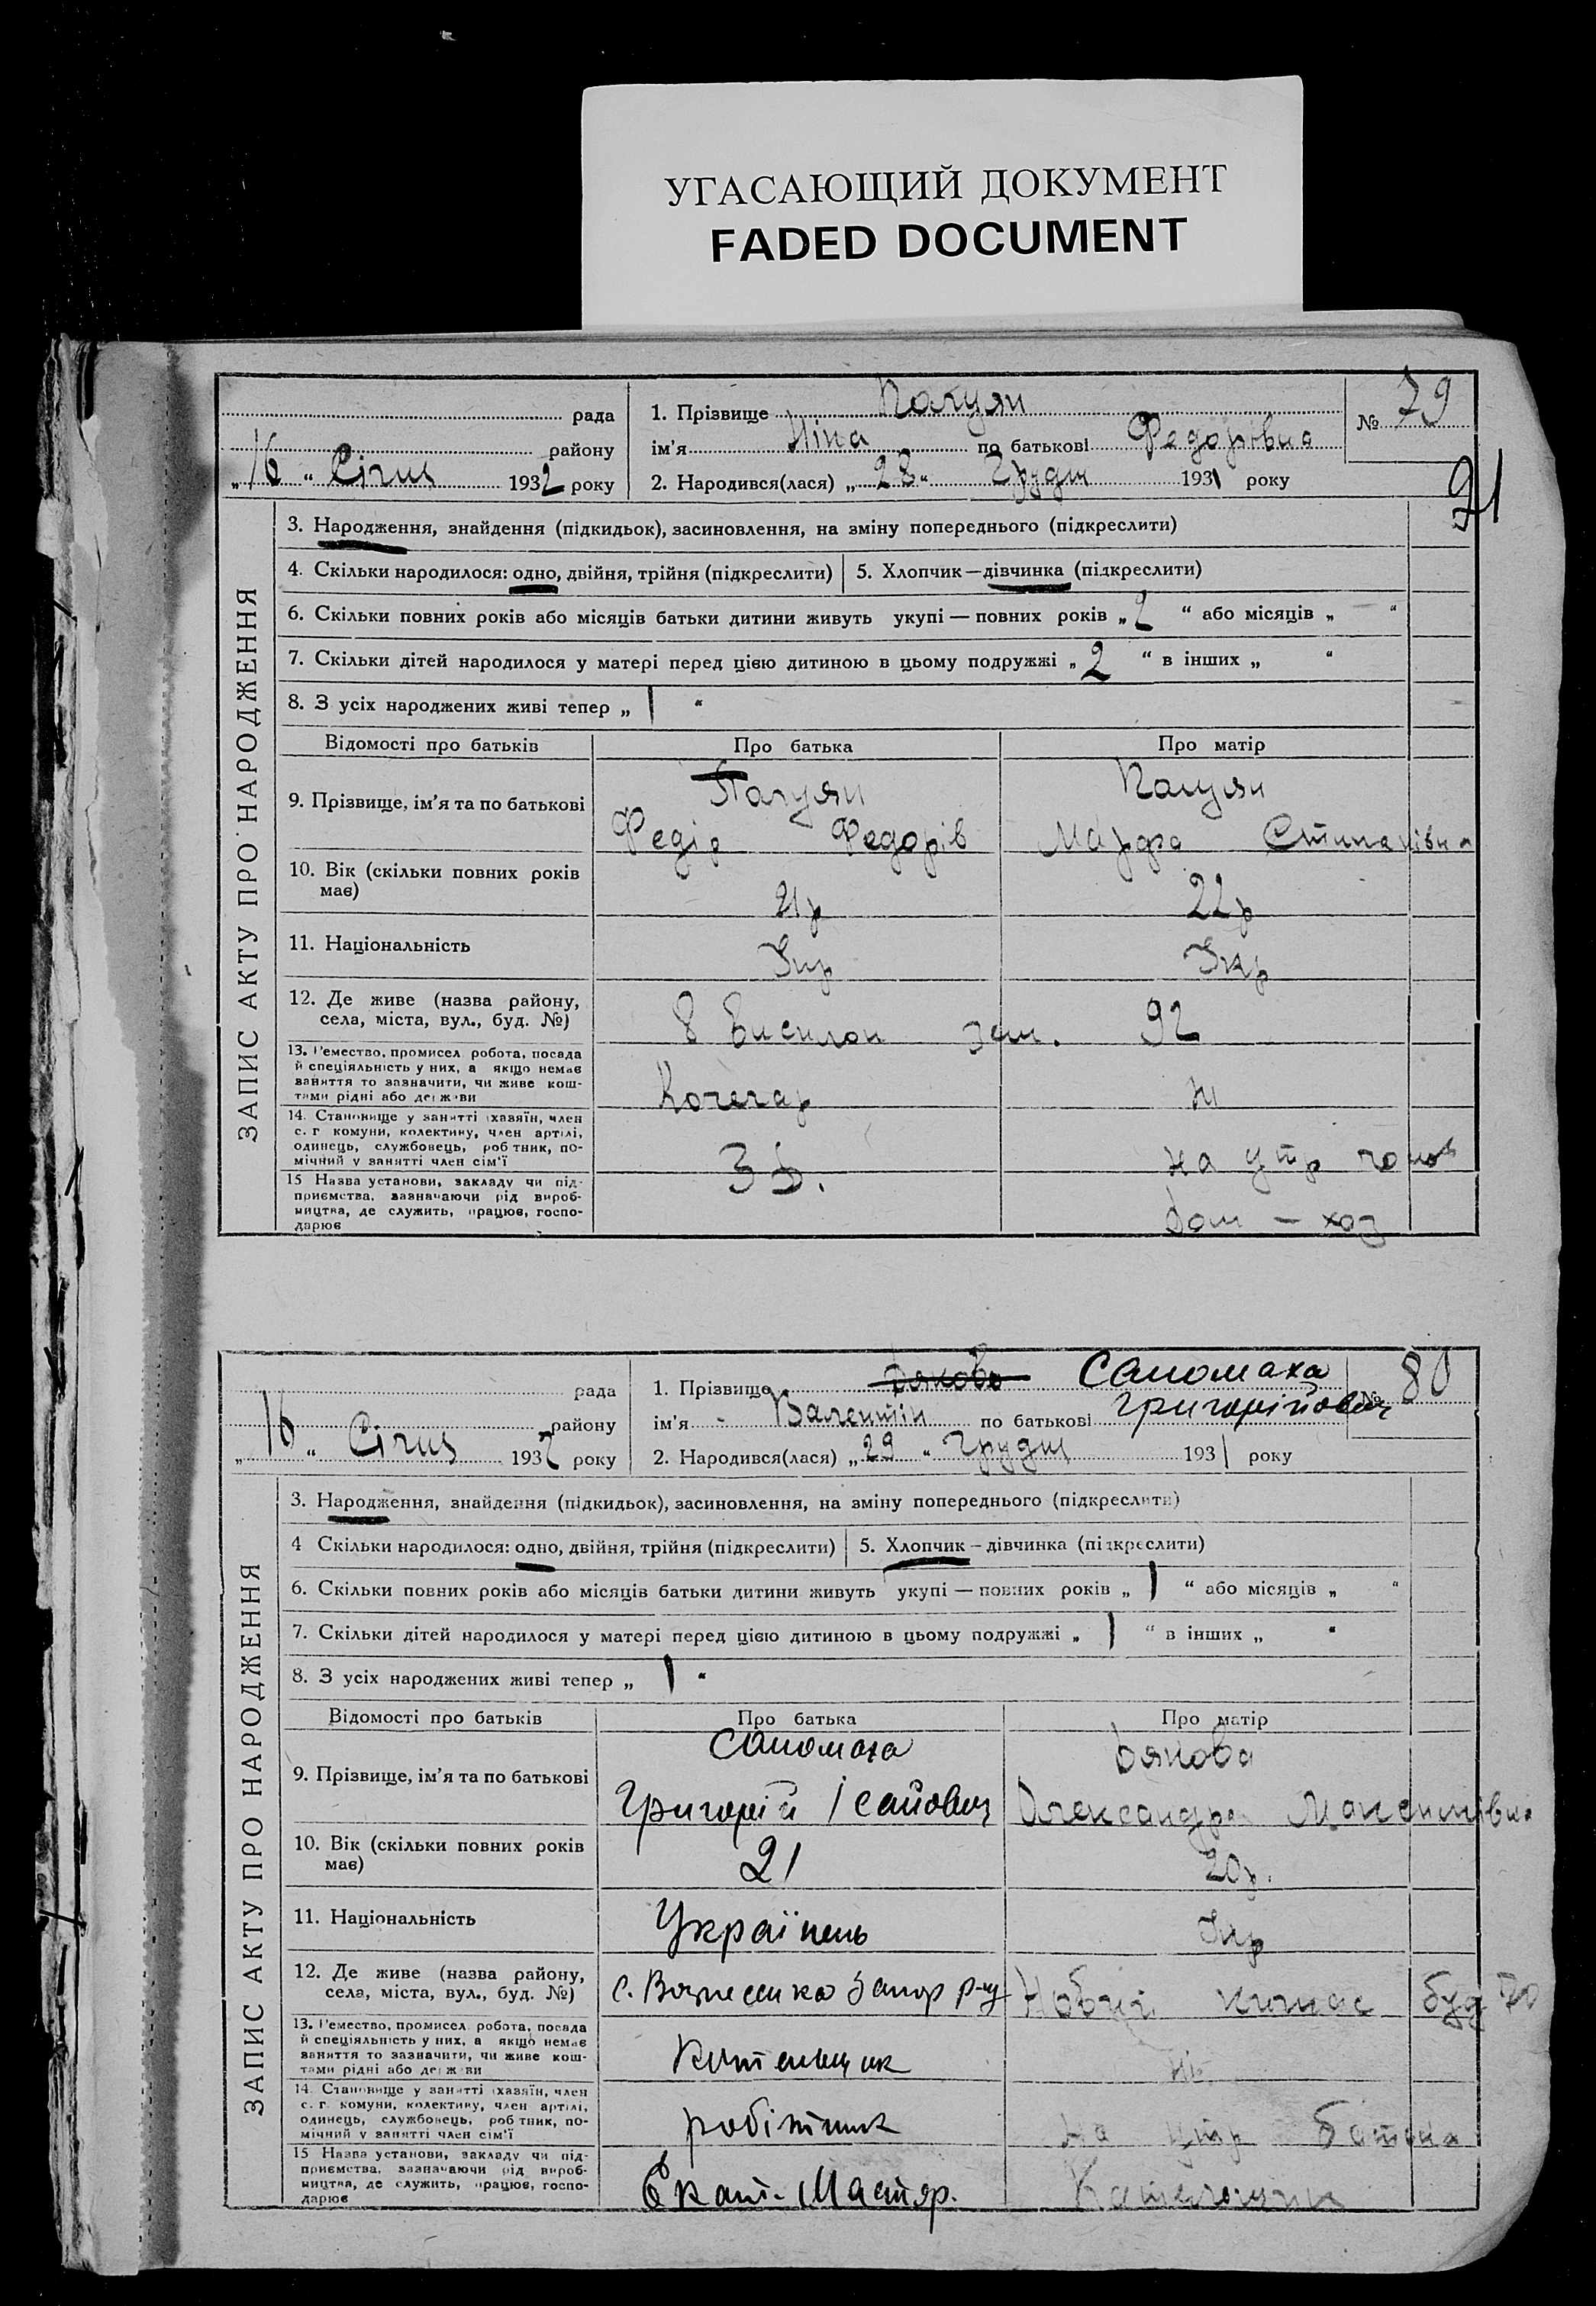 УГАСАЮЩИЙ ДОКУМЕНТ
FADED DOCUMENT
рада
району
„16“ Січня 1932 року
1. Прізвище
ім’я Ніна по батькові Федорівна
2. Народився(лася) „28“ Грудня 1931 року
№ 79
91
ЗАПИС АКТУ ПРО НАРОДЖЕННЯ
3. Народження, знайдення (підкидьок), засиновлення, на зміну попереднього (підкреслити)
4. Скільки народилося: одно, двійня, трійня (підкреслити)
5. Хлопчик—дівчинка (підкреслити)
6. Скільки повних років або місяців батьки дитини живуть укупі — повних років „2“ або місяців „ — “
7. Скільки дітей народилося у матері перед цією дитиною в цьому подружжі „2“ в інших „ “
8. З усіх народжених живі тепер „1“
Відомості про батьків Про батька Про матір
9. Прізвище, ім’я та по батькові
Федір Федорів
Марфа Стипанівна
10. Вік (скільки повних років має)
21р
22р
11. Національність
Укр
Укр
12. Де живе (назва району, села, міста, вул., буд. №)
8 Висилок зем. 92
13. Ремество, промисел робота, посада
й спеціяльність у них, а якщо немає
заняття то зазначити, чи живе кош-
тами рідні або держави
Кочегар
14. Становище у занятті (хазяїн, член
с. г. комуни, колективу, член артілі,
одинець, службовець, робітник, по-
мічний у занятті член сім’ї
на утр чолов
15 Назва установи, закладу чи під-
приємства, зазначаючи рід вироб-
ництва, де служить, працює, госпо-
дарює
дом – хаз
рада
району
„16“ Січня 1932 року
1. Прізвище Дякова Саломаха
ім’я Валентін по батькові Григорійович
2. Народився(лася) „29“ Грудня 1931 року
№ 80
ЗАПИС АКТУ ПРО НАРОДЖЕННЯ
3. Народження, знайдення (підкидьок), засиновлення, на зміну попереднього (підкреслити)
4 Скільки народилося: одно, двійня, трійня (підкреслити)
5. Хлопчик – дівчинка (підкреслити)
6. Скільки повних років або місяців батьки дитини живуть укупі — повних років „1“ або місяців „ “
7. Скільки дітей народилося у матері перед цією дитиною в цьому подружжі „1“ в інших „ “
8. З усіх народжених живі тепер „1“
Відомості про батьків Про батька Про матір
9. Прізвище, ім’я та по батькові
Саломаха
Григорій Ісайович
Дякова
Олександра Максимівна
10. Вік (скільки повних років має)
21
20р.
11. Національність
Українець
Укр
12. Де живе (назва району, села, міста, вул., буд. №)
с. Вознесенка Запор р-ну
буд 70
13. Ремество, промисел робота, посада
й спеціяльність у них, а якщо немає
заняття то зазначити, чи живе кош-
тами рідні або держави
Котельщик
14. Становище у занятті (хазяїн, член
с. г. комуни, колективу, член артілі,
одинець, службовець, робітник, по-
мічний у занятті член сім’ї
робітник
на утр батька
15 Назва установи, закладу чи під-
приємства, зазначаючи рід вироб-
ництва, де служить, працює, госпо-
дарює